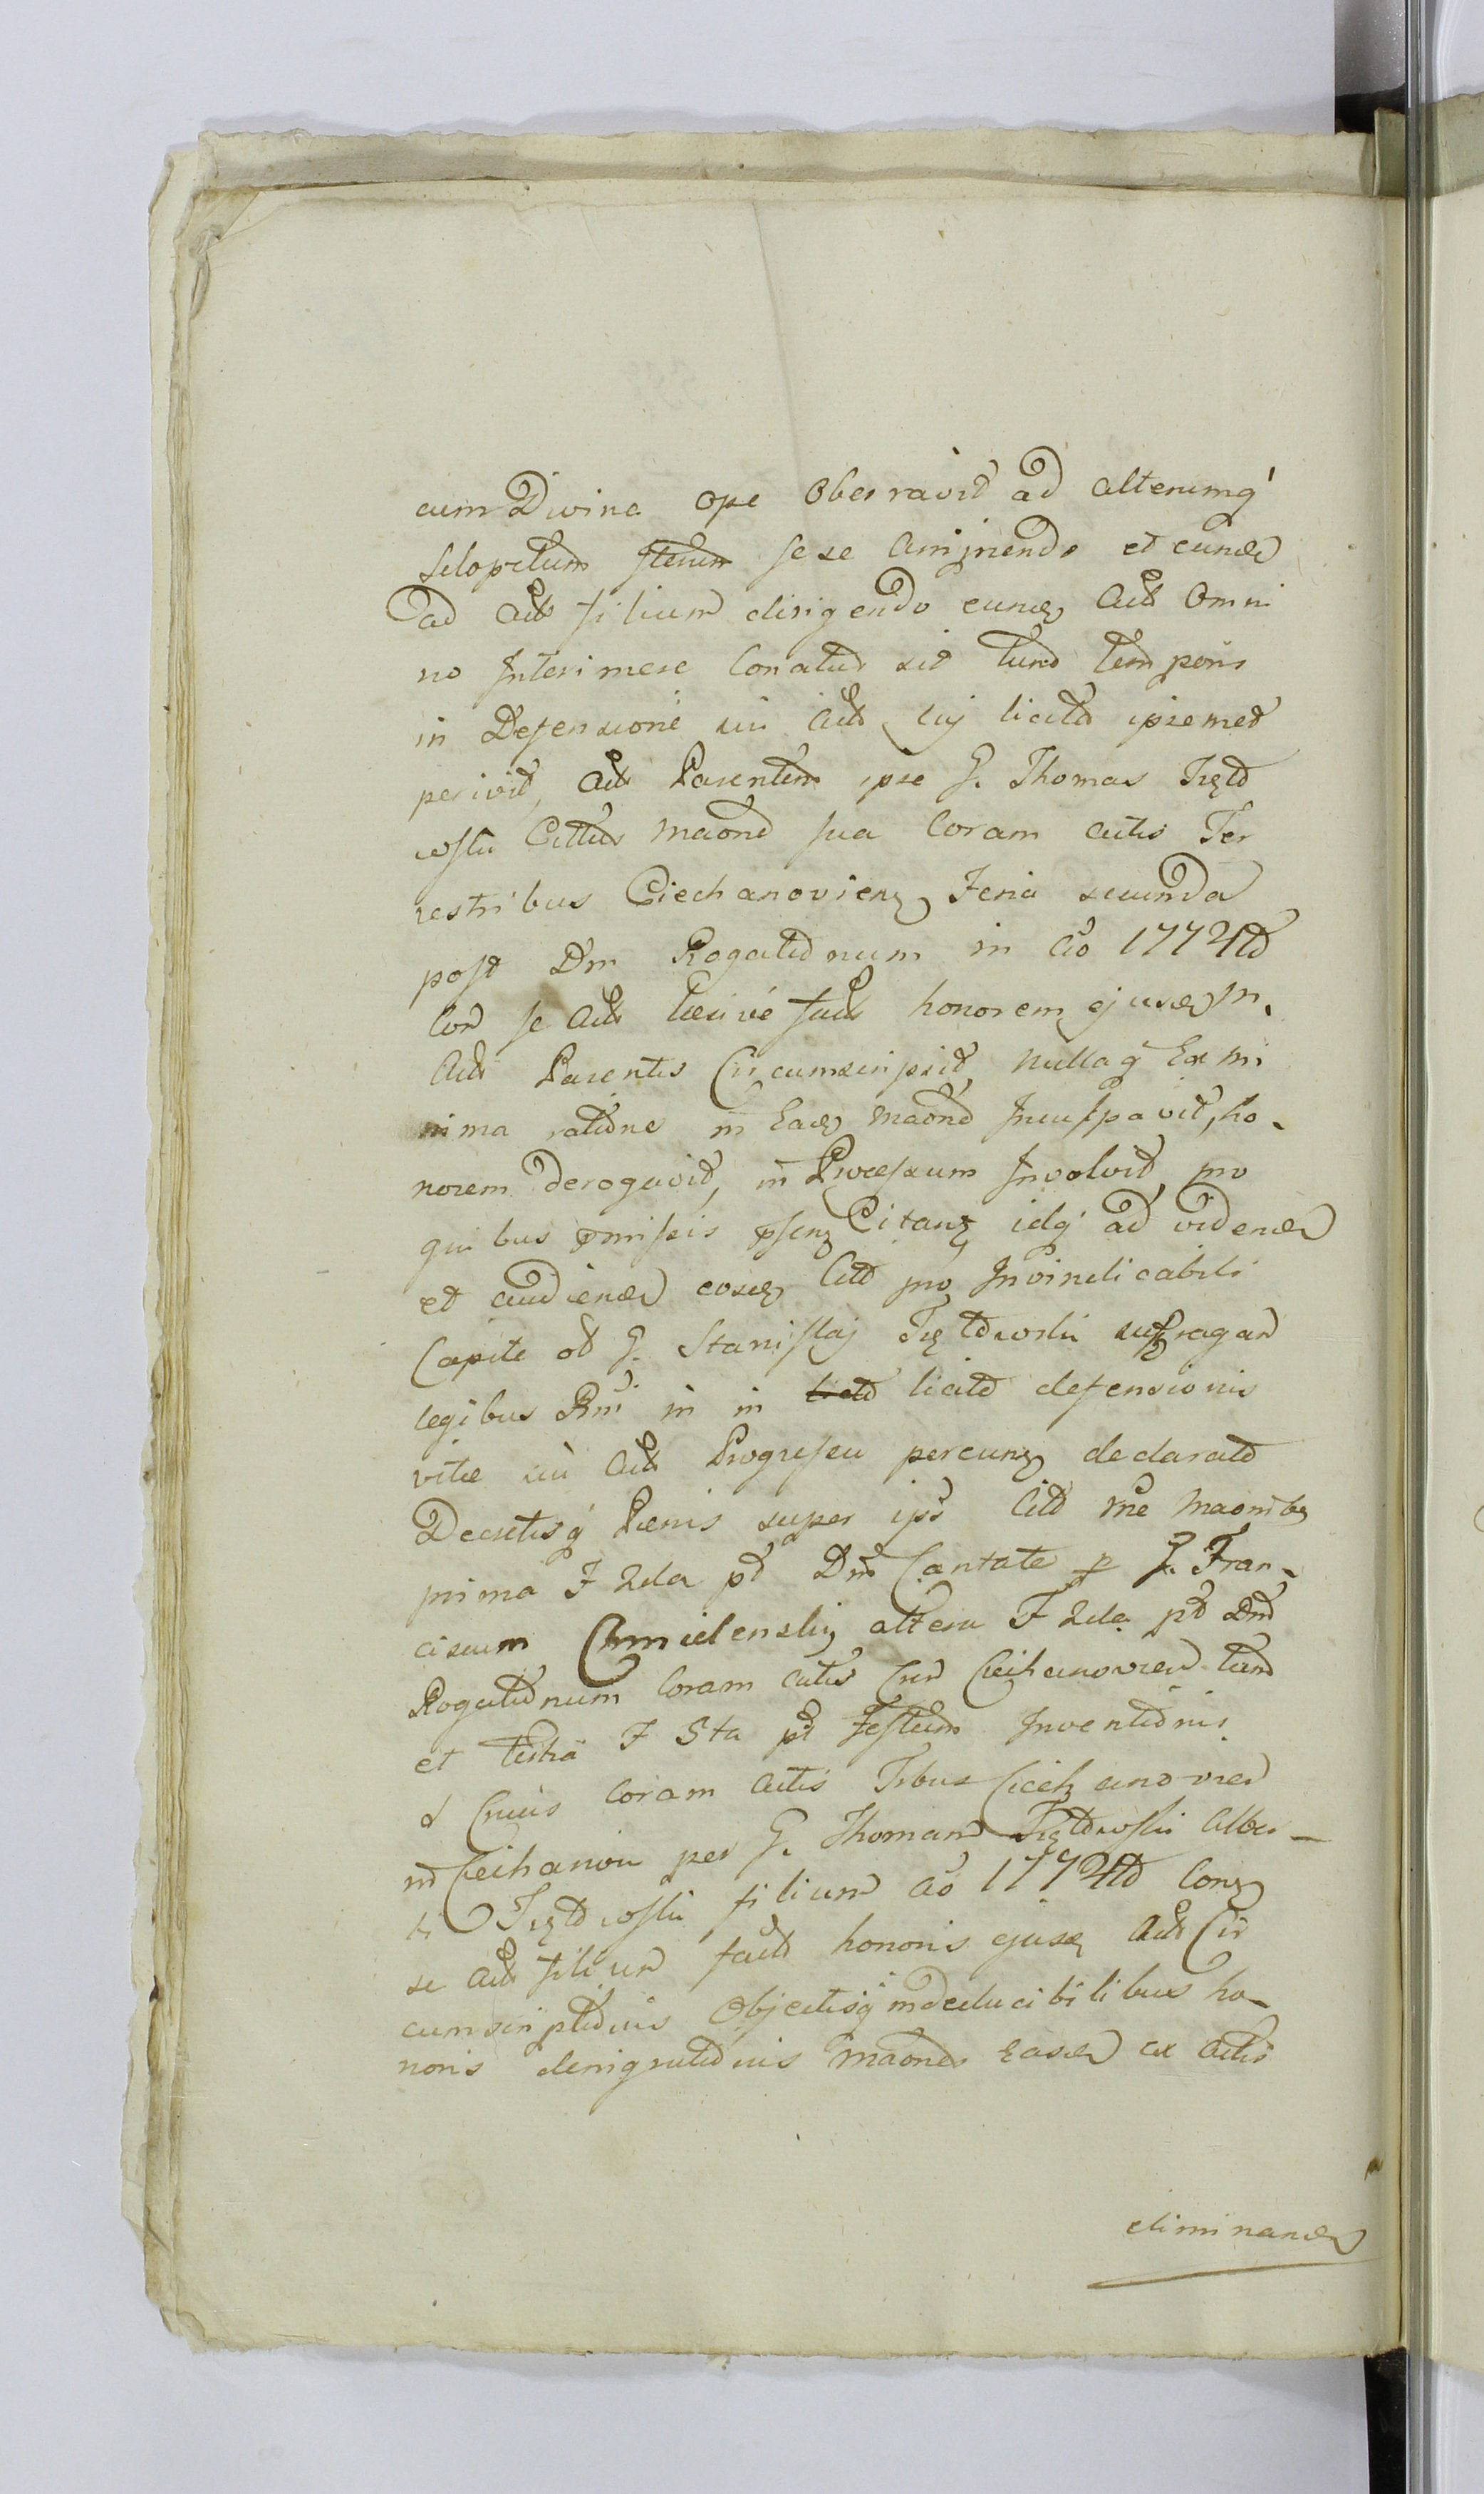 cum Divina ope Oberravit ad alterumq
Sclopetum sese Arripiendo et eund
ad Act filium dirigendo eund Act Omni
no Interimere Conatus sit tund temporis
in Defensione sui Act cuj licita ipsemet
perivit, Act Parentem ipse G. Thomas Trętd
wski Cittus maond sua Coram actis Ter
restribus Ciechanovien Feria secunda
post Dm Rogatidnum in Ao 1774td
Con se Act honorem ejusd m.
Act Parentis Circumscripsit, nullaq Ex mi
nima ratidne in Ead maond Inculpavit, ho-
norem derogavit, in Processum Involvit pro
quibus pmissis psens Citans idq ad vidend
et audiend eosd Citd pro Invindicabili
Capite ol G. Stanislaj Trętdwski suffragan
legibus Rni in in licitd defensionis
vitæ sui Act Progressu pereuns declaratd
Decretisq Pænis super ips Citd rne maonibs
prima F 2da pt Dm Cantate p G. Fran-
ciscum Chmielenskj altera F 2da pt Dnd
Rogatidnum Coram actis Ciechanovien tand
et tertia F 5ta pt Festum Inventidnis
S Crucis Coram Actis Trbus Ciechanovien
in Ciechanow per G. Thomam Trętdwski Alber-
ti Trętdwski filium Ao 1774td Cons
se Act filium factd honoris ejusd Act Cir
cumscriptidnis Objectisq indeducibilibus ho-
noris denigratidnis maones easd ex Actis
eliminand